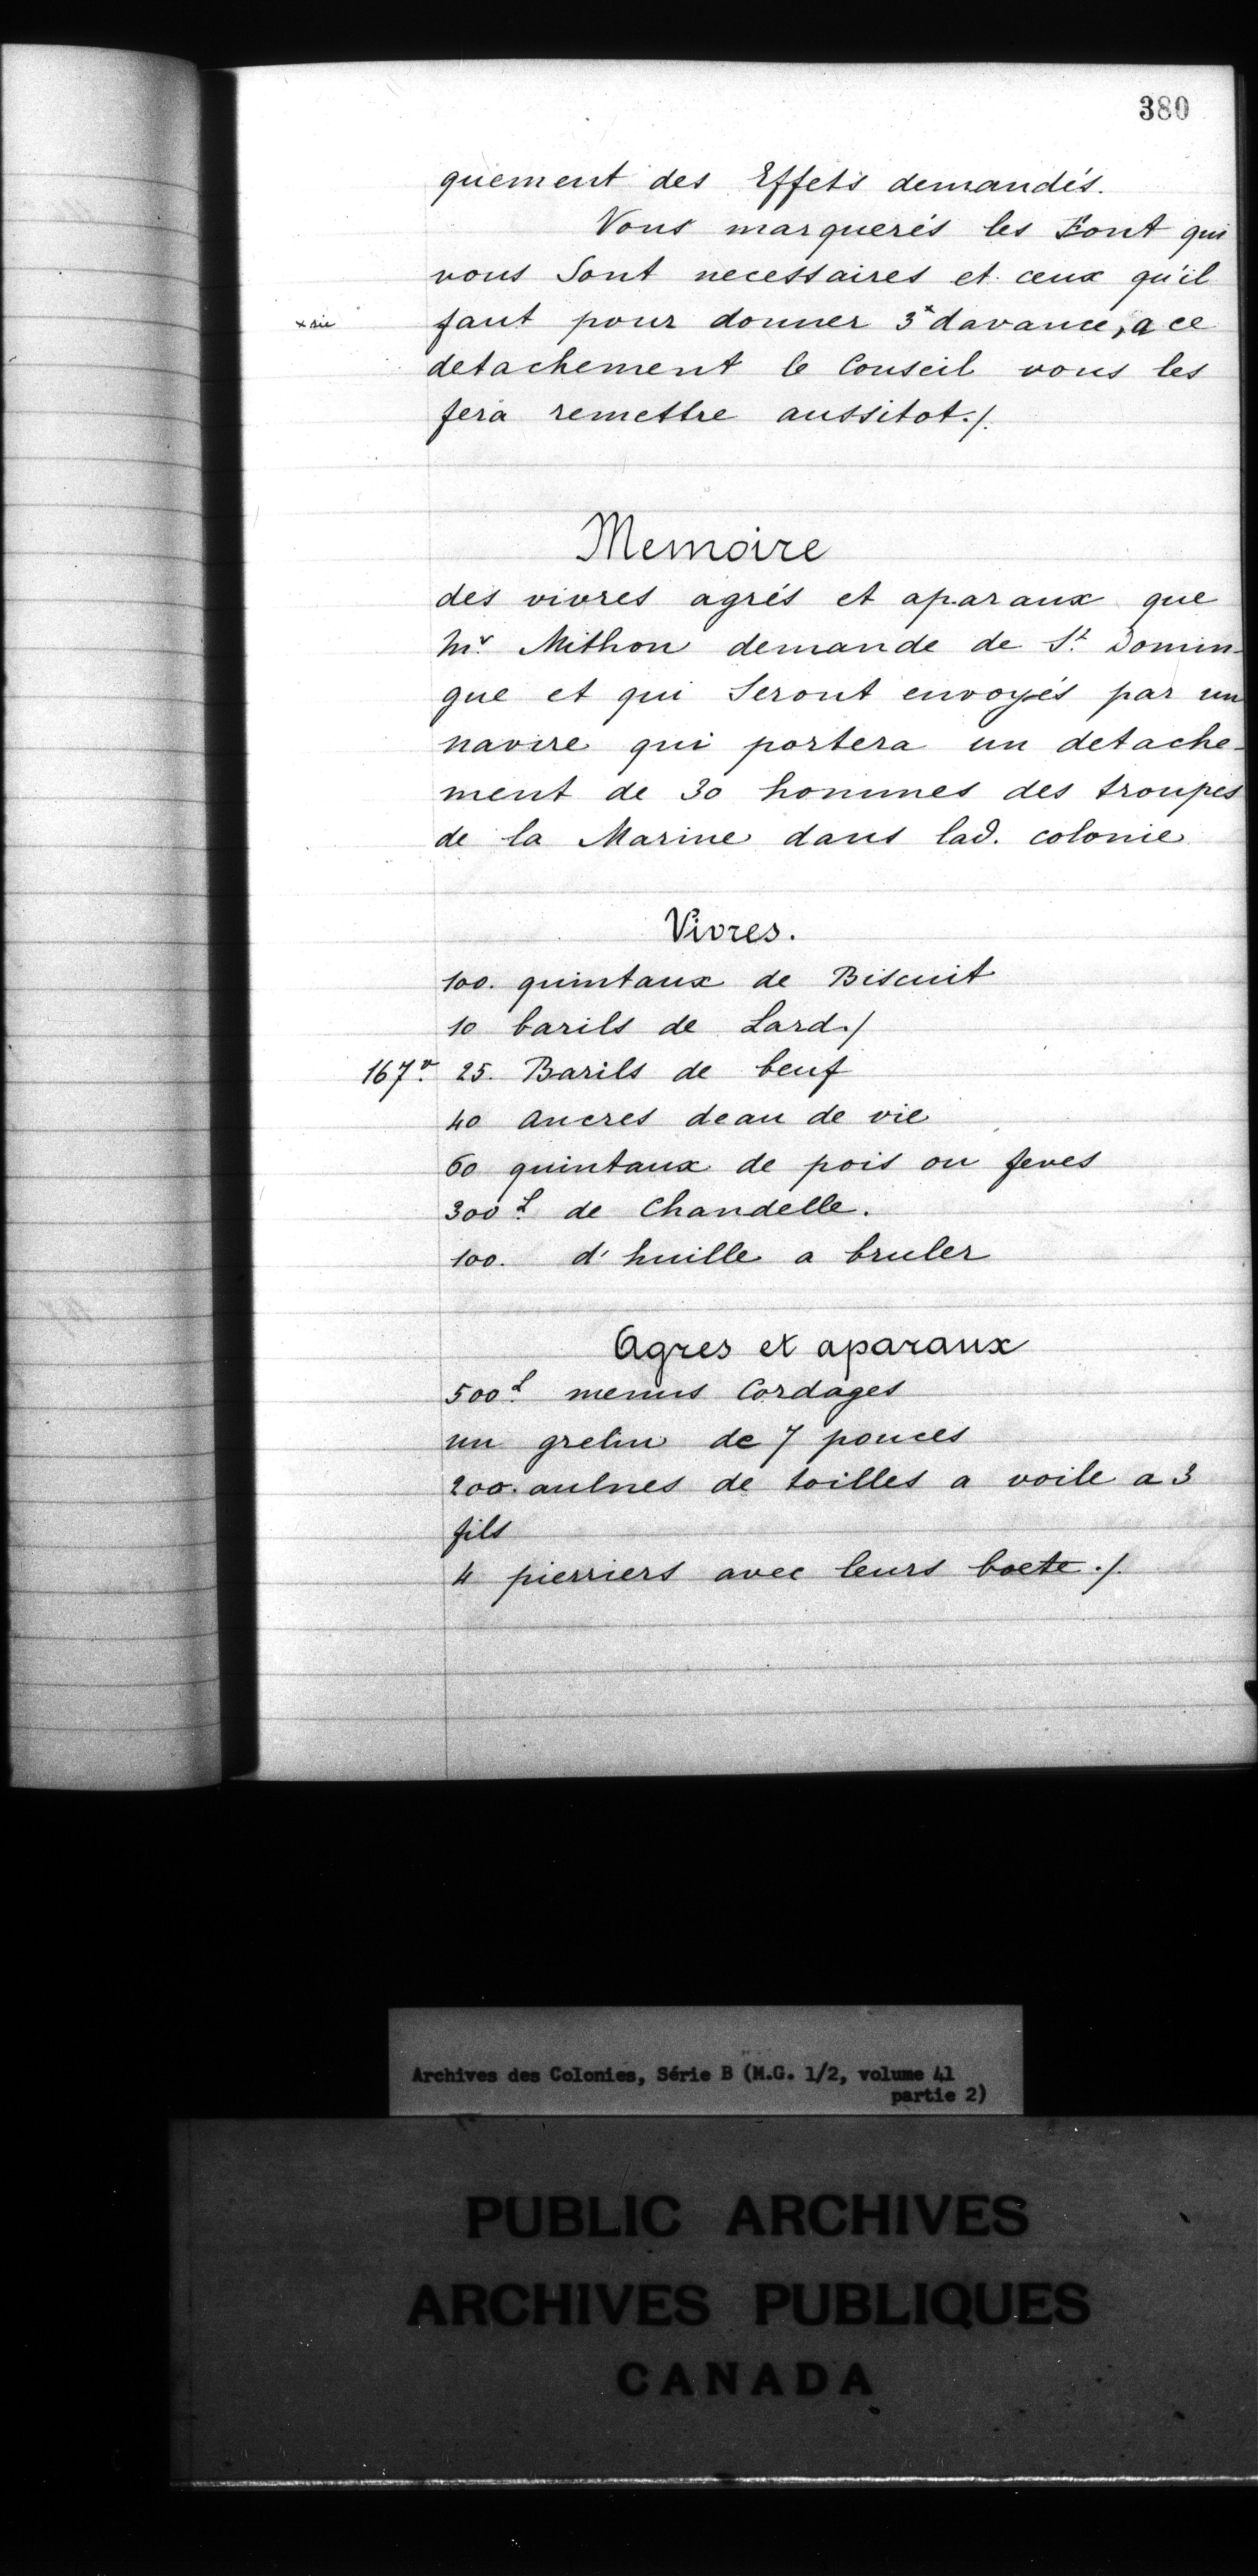 380
quement des Effets demandés.
Vous marquerés les Font qui
vous Sont necessaires et ceux qu'il
x sic
faut pour donner 3x davance, a ce
detachement le Conseil vous les
fera remettre aussitot ./.
Memoire
des vivres agrés et aparaux que
Mr. Mithon demande de St. Domin-
gue et qui Seront envoyés par un
navire qui portera un detache-
ment de 30 hommes des troupes
de la Marine dans lad. colonie
Vivres.
100. quintaux de Biscuit
10 barils de Lard ./
167v. 25. Barils de beuf
40 ancres deau de vie
60 quintaux de pois ou feves
300 L. de Chandelle.
100. d'huille a bruler
Agres et aparaux
500 L. menus Cordages
un grelin de 7 pouces
200. aulnes de toilles a voile a 3
fils
4 pierriers avec leurs boete ./.
Archives des Colonies, Série B (M.G. 1/2, volume 41
partie 2)
PUBLIC ARCHIVES
ARCHIVES PUBLIQUES
CANADA